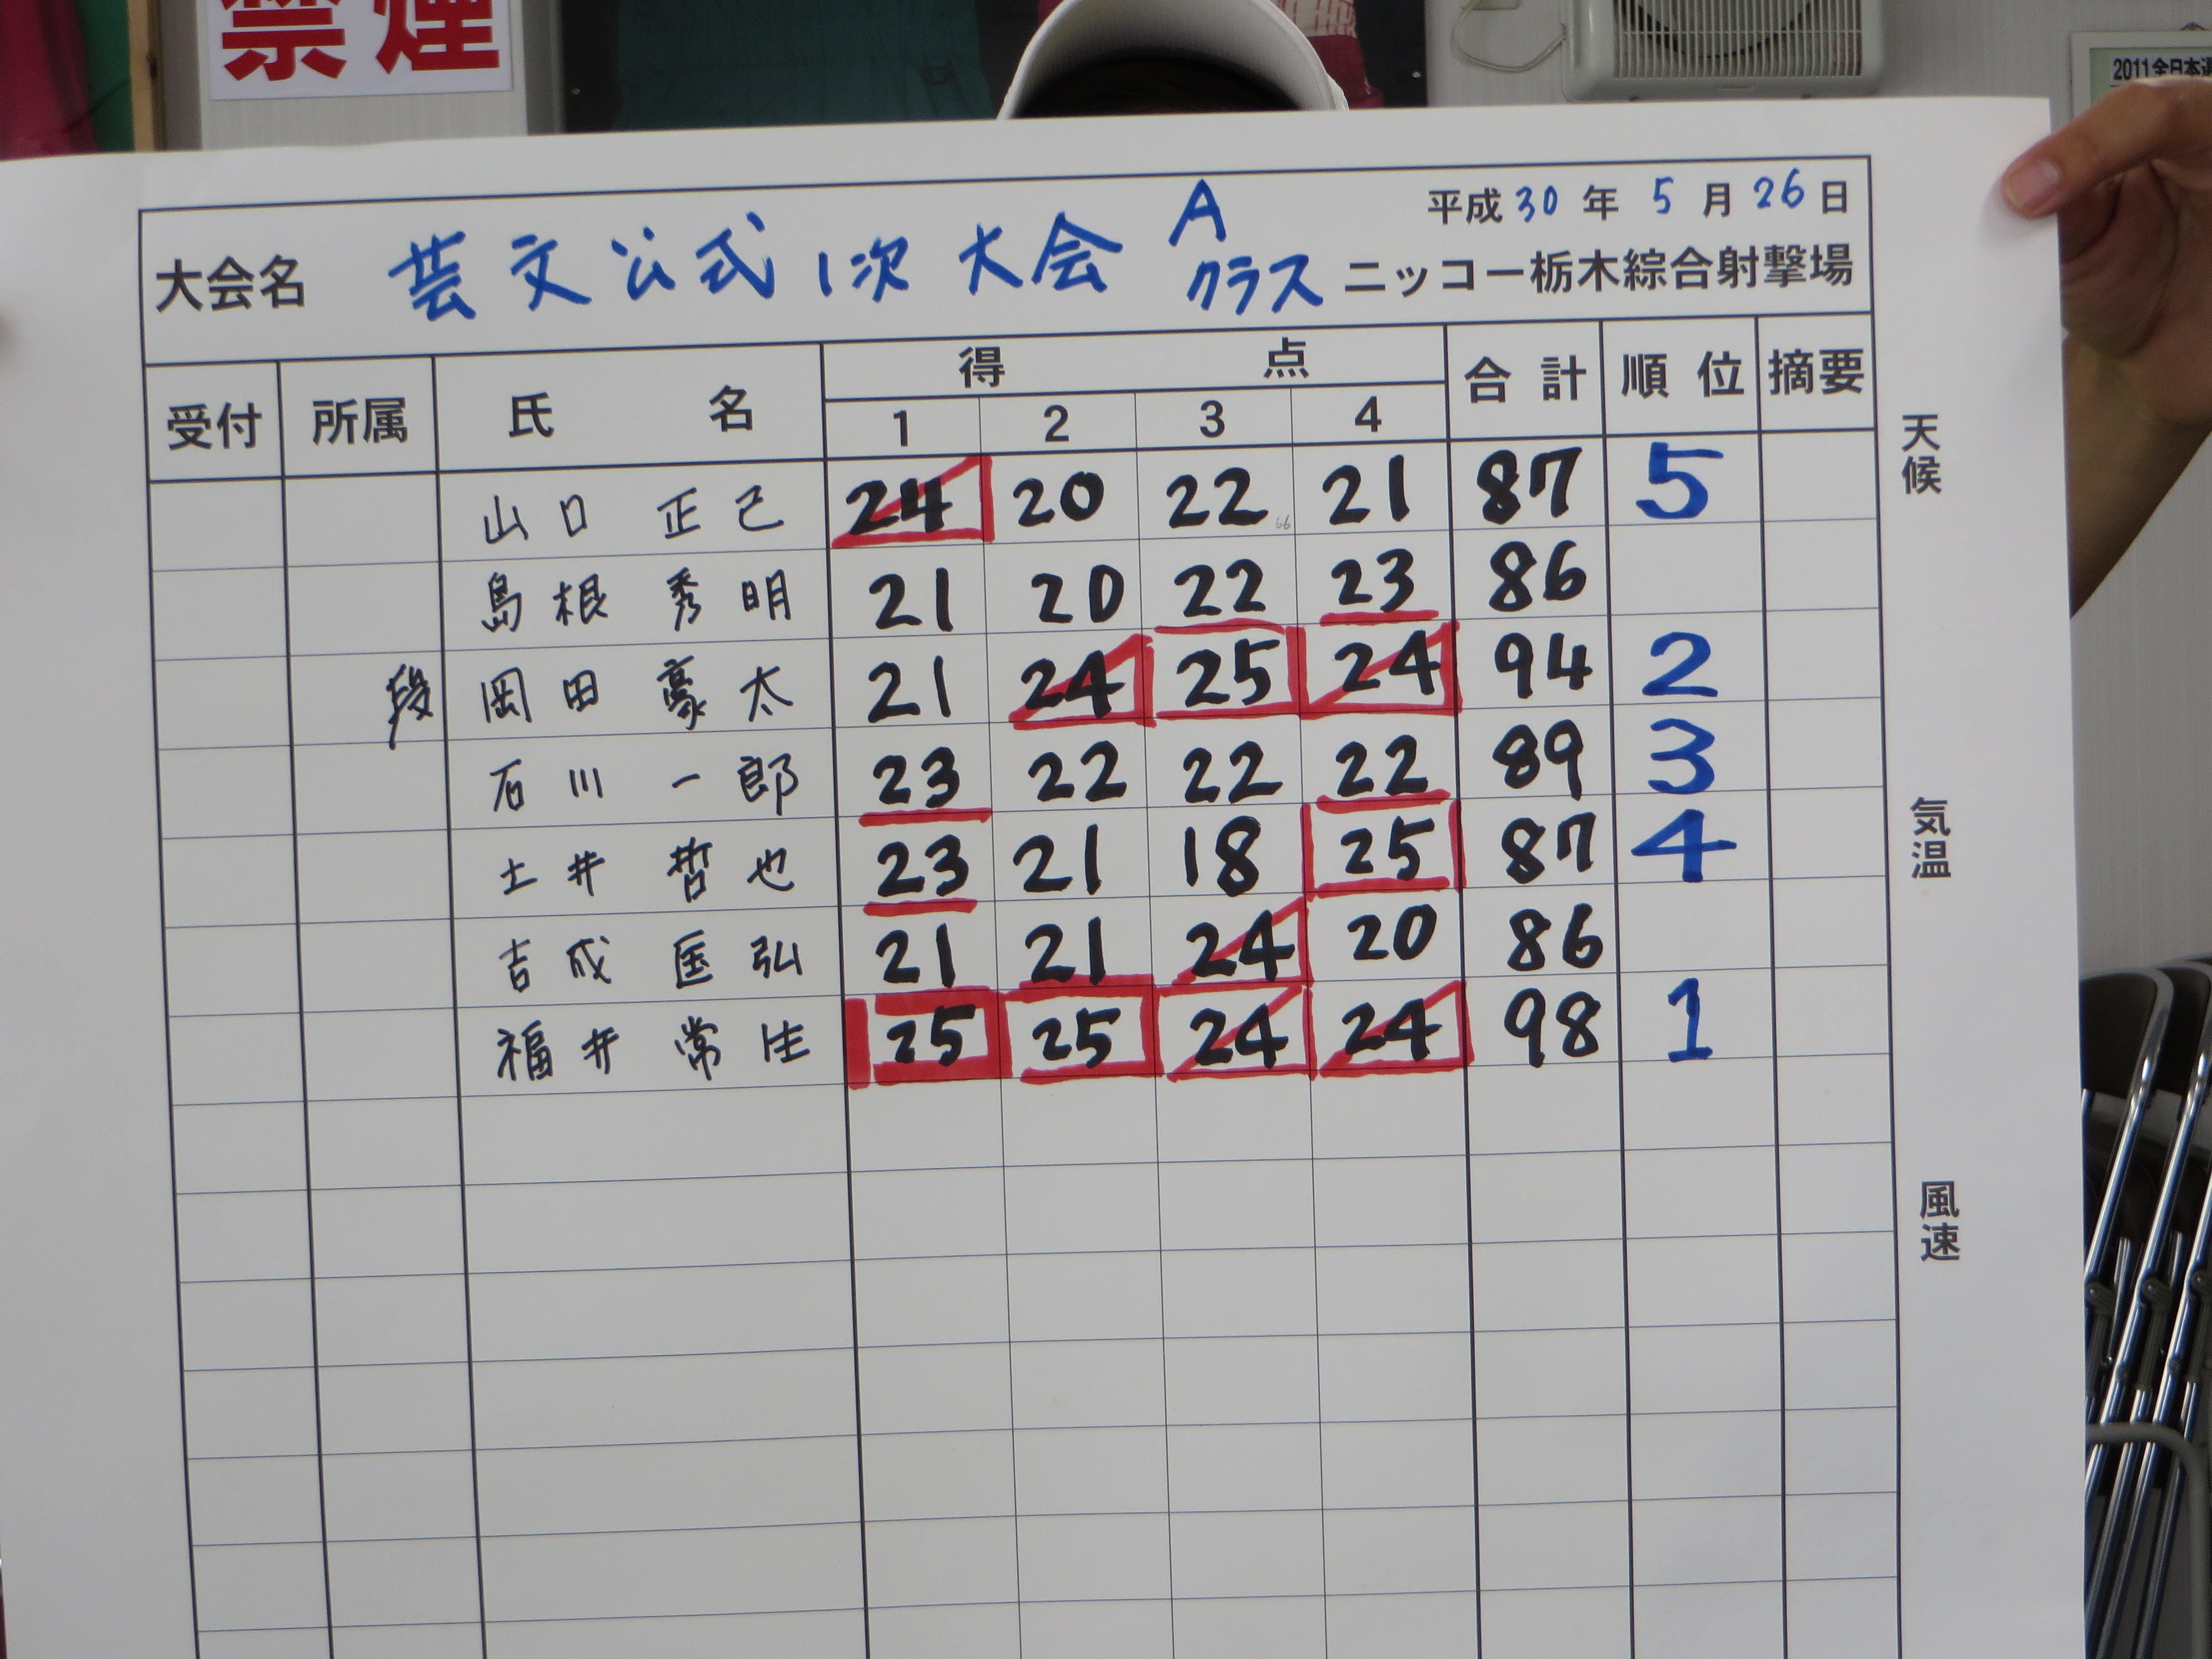 禁煙
2011全日本選
平成30年 5月26日
大会名 芸文公式1次大会 Aクラス ニッコー栃木綜合射撃場
受付 所属 氏名 得点 合計 順位 摘要
1 2 3 4
山口 正己 24 20 22 21 87 5
島根 秀明 21 20 22 23 86
段 岡田 豪太 21 24 25 24 94 2
石川 一郎 23 22 22 22 89 3
土井 哲也 23 21 18 25 87 4
吉成 匡弘 21 21 24 20 86
福井 常生 25 25 24 24 98 1
天候
気温
風速